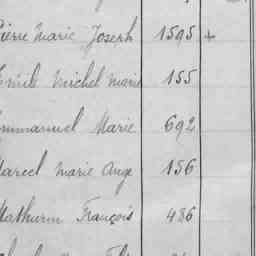 Pierre Marie Joseph 1595 +
Emile Michel Marie 155
Emmanuel Marie 692
Marcel Marie Ange 156
Mathurin François 486